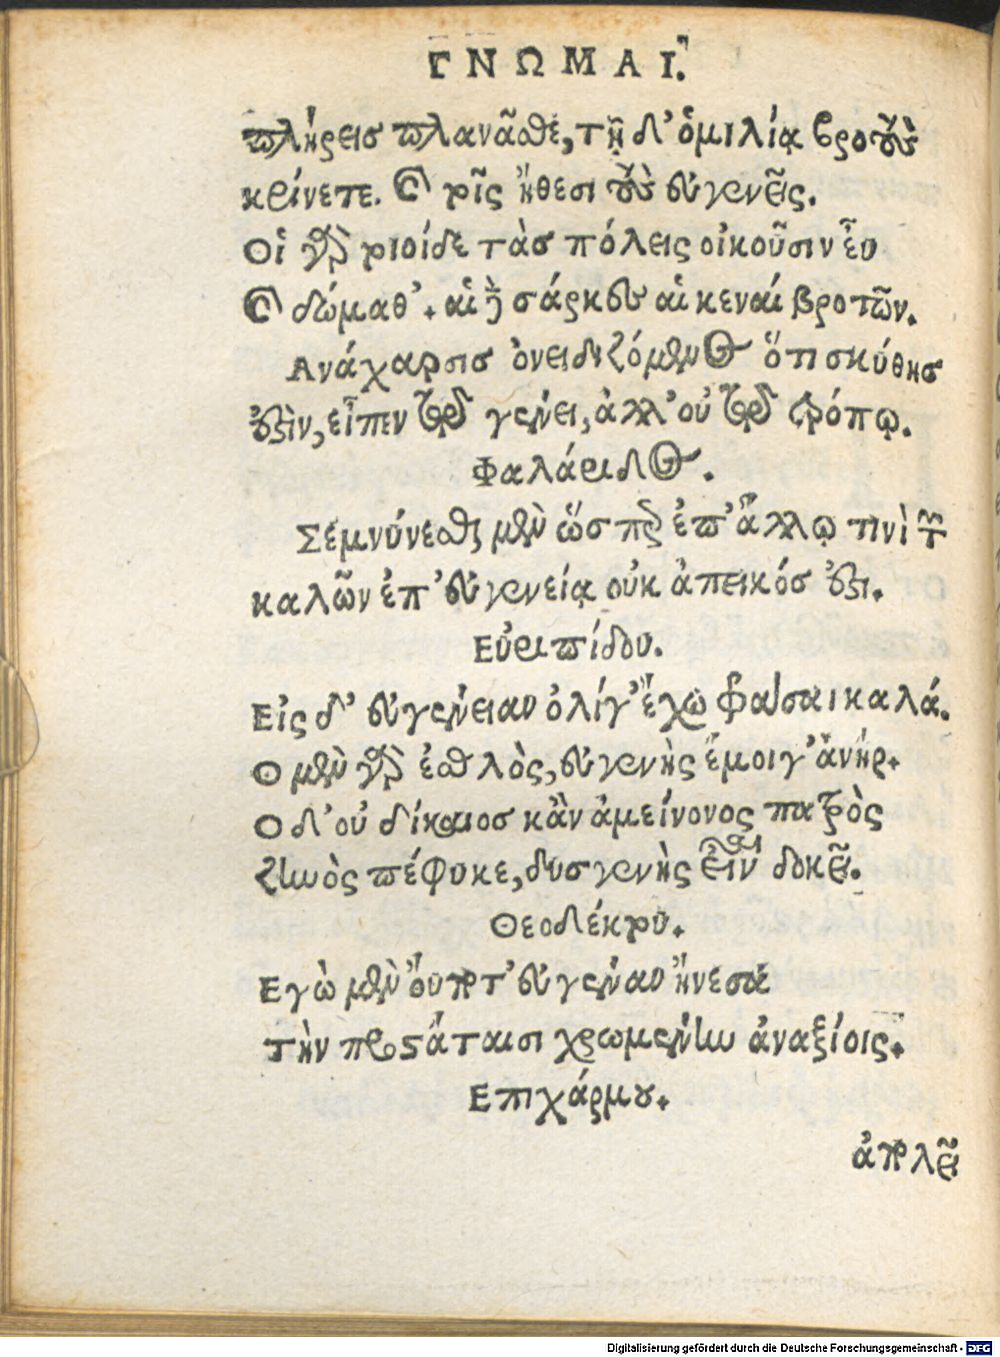 ΓΝΩΜΑΙ.
πλήρεις πλανᾶσθε, τῇ δ' ὁμιλίᾳ βροτοὺς
κρίνετε. καὶ ρῖς ἤθεσι τοὺς εὐγενεῖς.
Οἱ γὰρ ριοίδε τὰσ πόλεις οἰκοῦσιν εὖ
καὶ δώμαθ'. αἱ δὲ σάρκες αἱ κεναί βροτῶν.
Ανάχαρσισ ὀνειδιζόμενος ὅτι σκύθησ
ἐστὶν, εἶπεν τῷ γένει, ἀλλ' οὐ τῷ τρόπῳ.
Φαλάριδος.
Σεμνύνεσθαι μὲν ὥσπερ ἐπ' ἄλλῳ τινὶ τῶν
καλῶν ἐπ' εὐγενείᾳ οὐκ ἀπεικόσ ἐστι.
Εὐριπίδου.
Εἰς δ' εὐγένειαν ὀλίγ' ἔχω φράσαι καλά.
Ο μὲν γὰρ ἐσθλὸς, εὐγενὴς ἔμοιγ' ἀνήρ.
Ο δ' οὐ δίκαιοσ κἂν ἀμείνονος πατρὸς
ζηνὸς πέφυκε, δυσγενὴς εἶναι δοκεῖ.
Θεοδέκτου.
Εγὼ μὲν οὔποτ' εὐγένειαν ἤνεσα
τὴν προστάταισι χρωμένην ἀναξίοις.
Επιχάρμου.
ἀπολεῖ
Digitalisierung gefördert durch die Deutsche Forschungsgemeinschaft - DFG